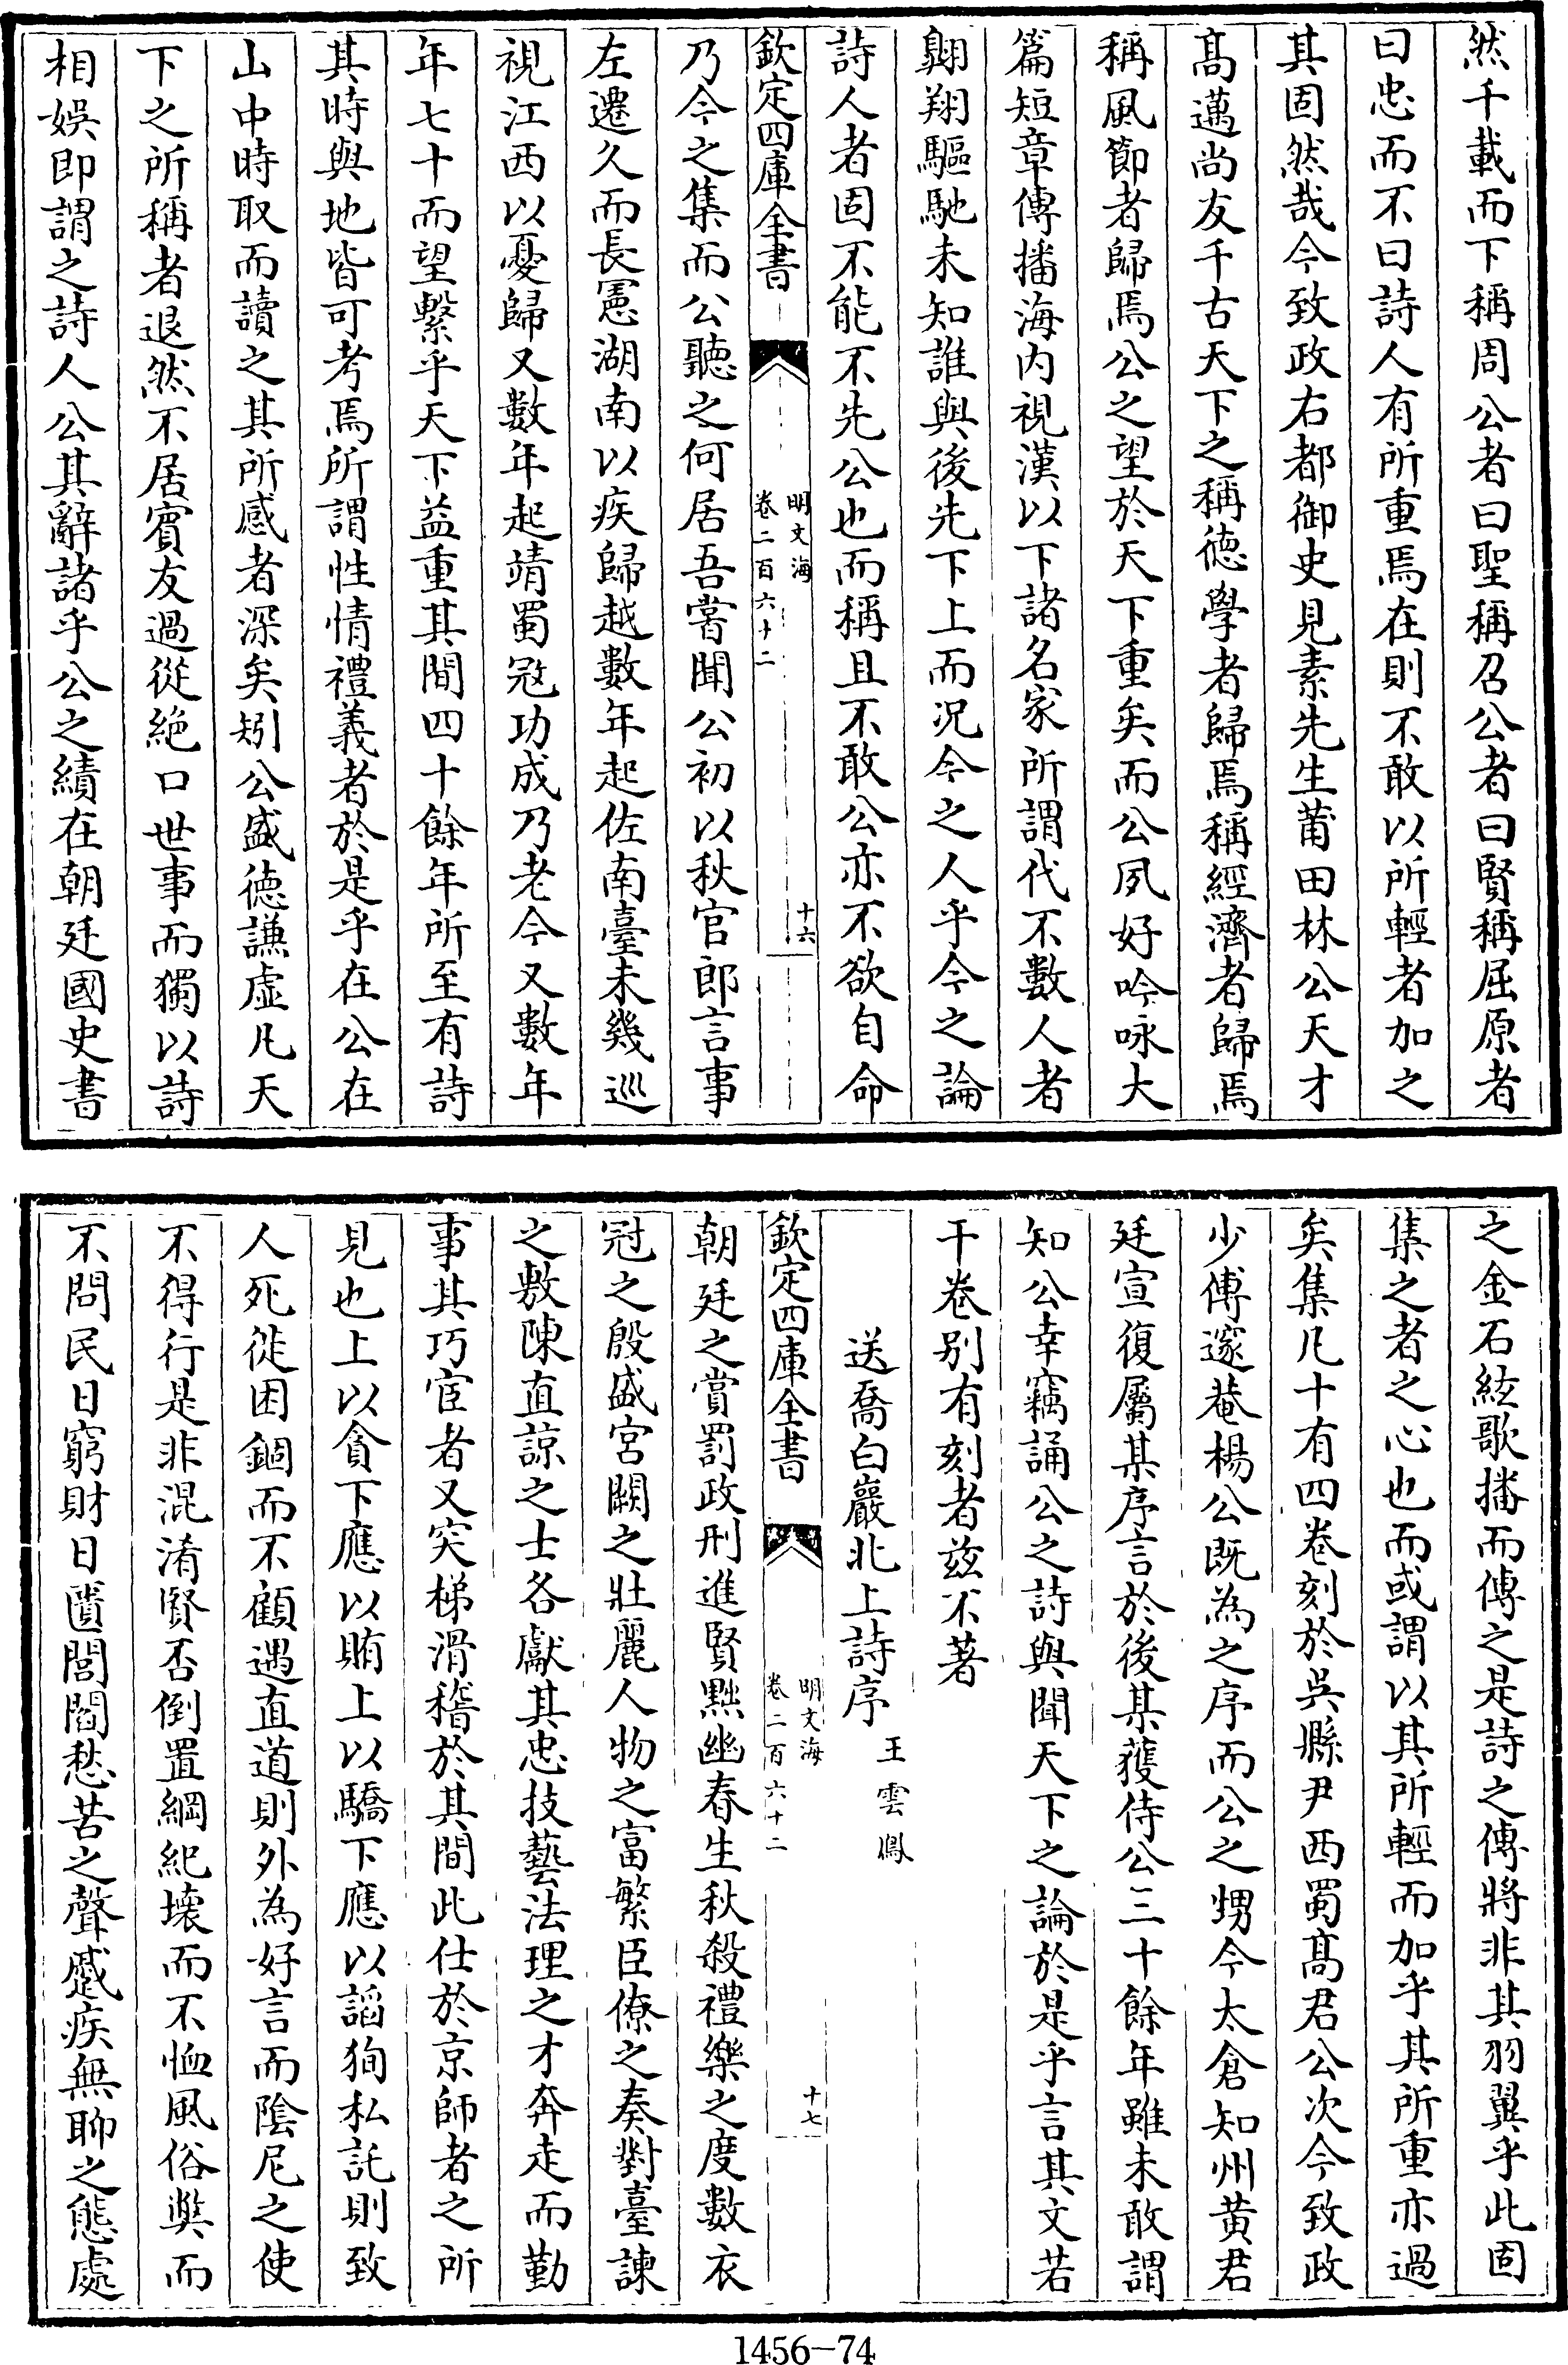 然千載而下稱周公者曰聖稱召公者曰賢稱屈原者
曰忠而不曰詩人有所重焉在則不敢以所輕者加之
其固然哉今致政右都御史見素先生莆田林公天才
髙邁尚友千古天下之稱徳學者歸焉稱經濟者歸焉
稱風節者歸焉公之望於天下重矣而公夙好吟咏大
篇短章傳播海内視漢以下諸名家所謂代不數人者
翺翔驅馳未知誰與後先下上而况今之人乎今之論
詩人者固不能不先公也而稱且不敢公亦不欲自命
欽定四庫全書
明文海
卷二百六十二
十六
乃今之集而公聽之何居吾嘗聞公初以秋官郎言事
左遷久而長憲湖南以疾歸越數年起佐南臺未幾巡
視江西以憂歸又數年起靖蜀冦功成乃老今又數年
年七十而望繫乎天下益重其間四十餘年所至有詩
其時與地皆可考焉所謂性情禮義者於是乎在公在
山中時取而讀之其所感者深矣矧公盛徳謙虚凡天
下之所稱者退然不居賓友過從絶口世事而獨以詩
相娯即謂之詩人公其辭諸乎公之績在朝廷國史書
之金石絃歌播而傳之是詩之傳將非其羽翼乎此固
集之者之心也而或謂以其所輕而加乎其所重亦過
矣集凡十有四卷刻於呉縣尹西蜀髙君公次今致政
少傅邃菴楊公既為之序而公之甥今太倉知州黄君
廷宣復屬某序言於後某獲侍公三十餘年雖未敢謂
知公幸竊誦公之詩與聞天下之論於是乎言其文若
干卷别有刻者兹不著
送喬白巖北上詩序 王雲鳳
欽定四庫全書
明文海
卷二百六十二
十七
朝廷之賞罰政刑進賢黜幽春生秋殺禮樂之度數衣
冠之殷盛宮闕之壯麗人物之富繁臣僚之奏對臺諫
之敷陳直諒之士各獻其忠技藝法理之才奔走而勤
事其巧宦者又突梯滑稽於其間此仕於京師者之所
見也上以貪下應以賄上以驕下應以謟狥私託則致
人死徙困錮而不顧遇直道則外為好言而隂尼之使
不得行是非混淆賢否倒置綱紀壊而不恤風俗獘而
不問民日窮財日匱閭閻愁苦之聲戚疾無聊之態處
1456-74